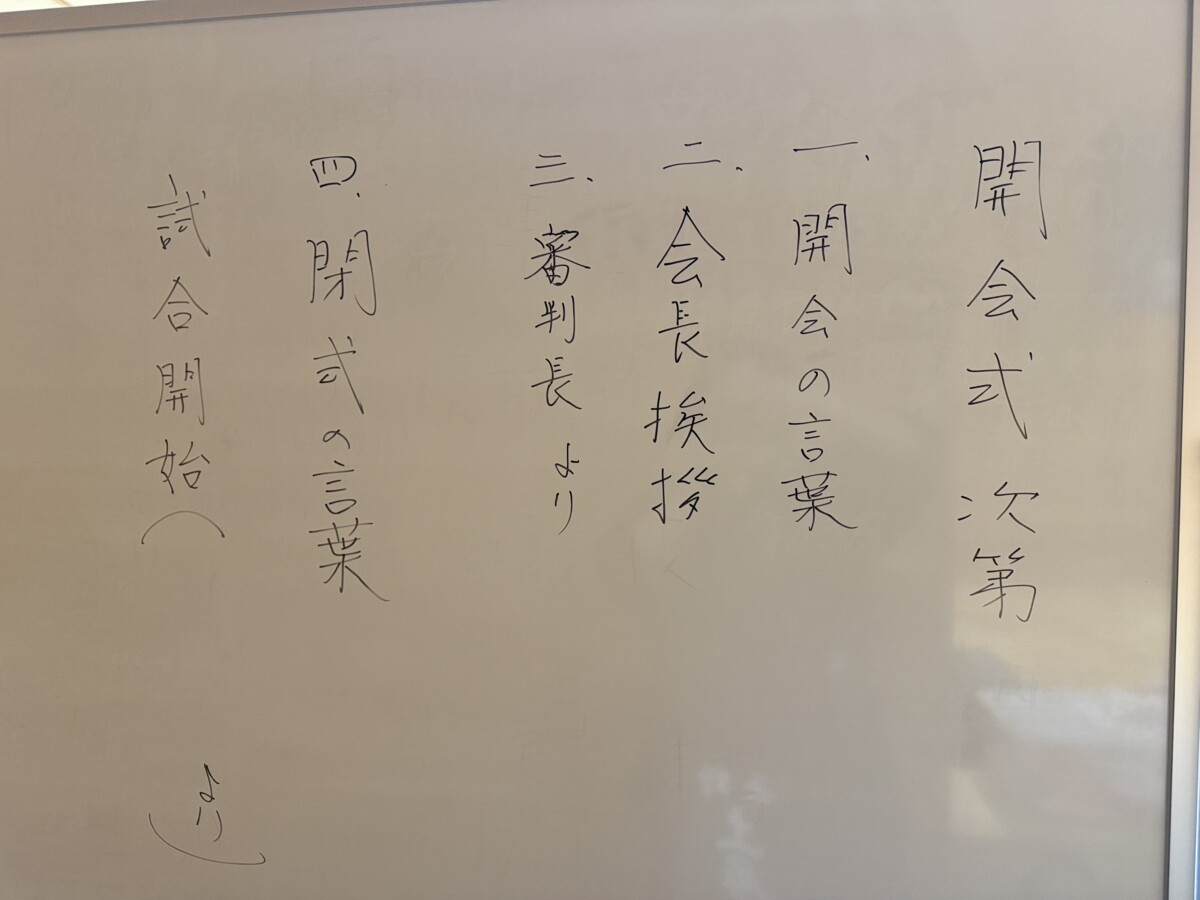 開会式次第
一、開会の言葉
二、会長挨拶
三、審判長より
四、閉式の言葉
試合開始(　　より)